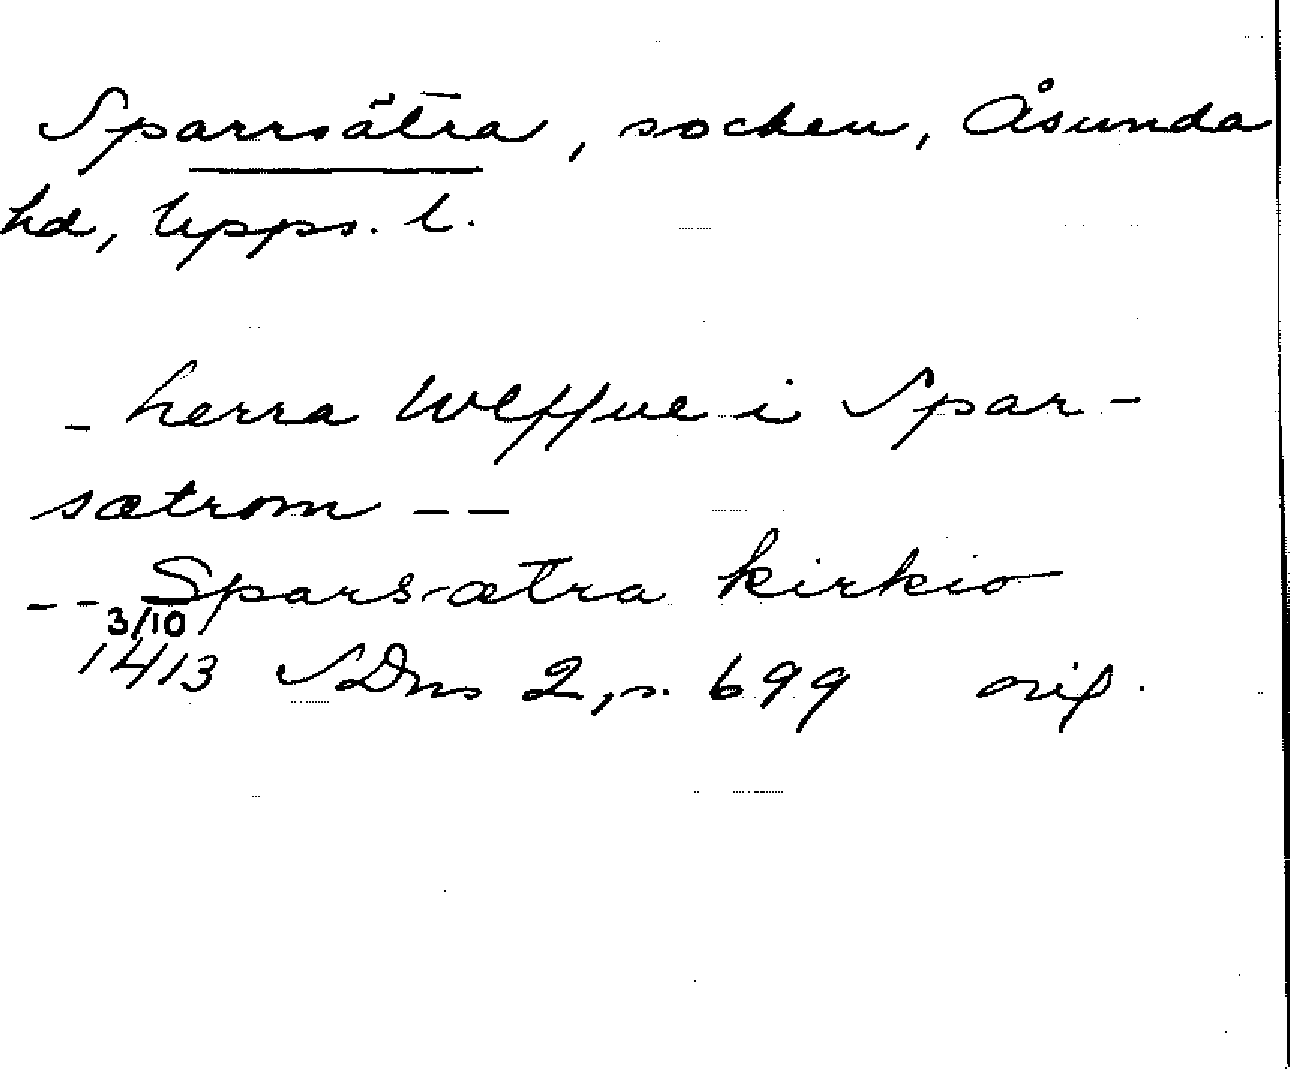 Sparrsätra, socken, Åsunda
hd, Upps. l.
- herra Wlffue i Spar-
sætrom --
-- Sparsætra kirkio
3/10
1413 SDns 2, s. 699 orig.